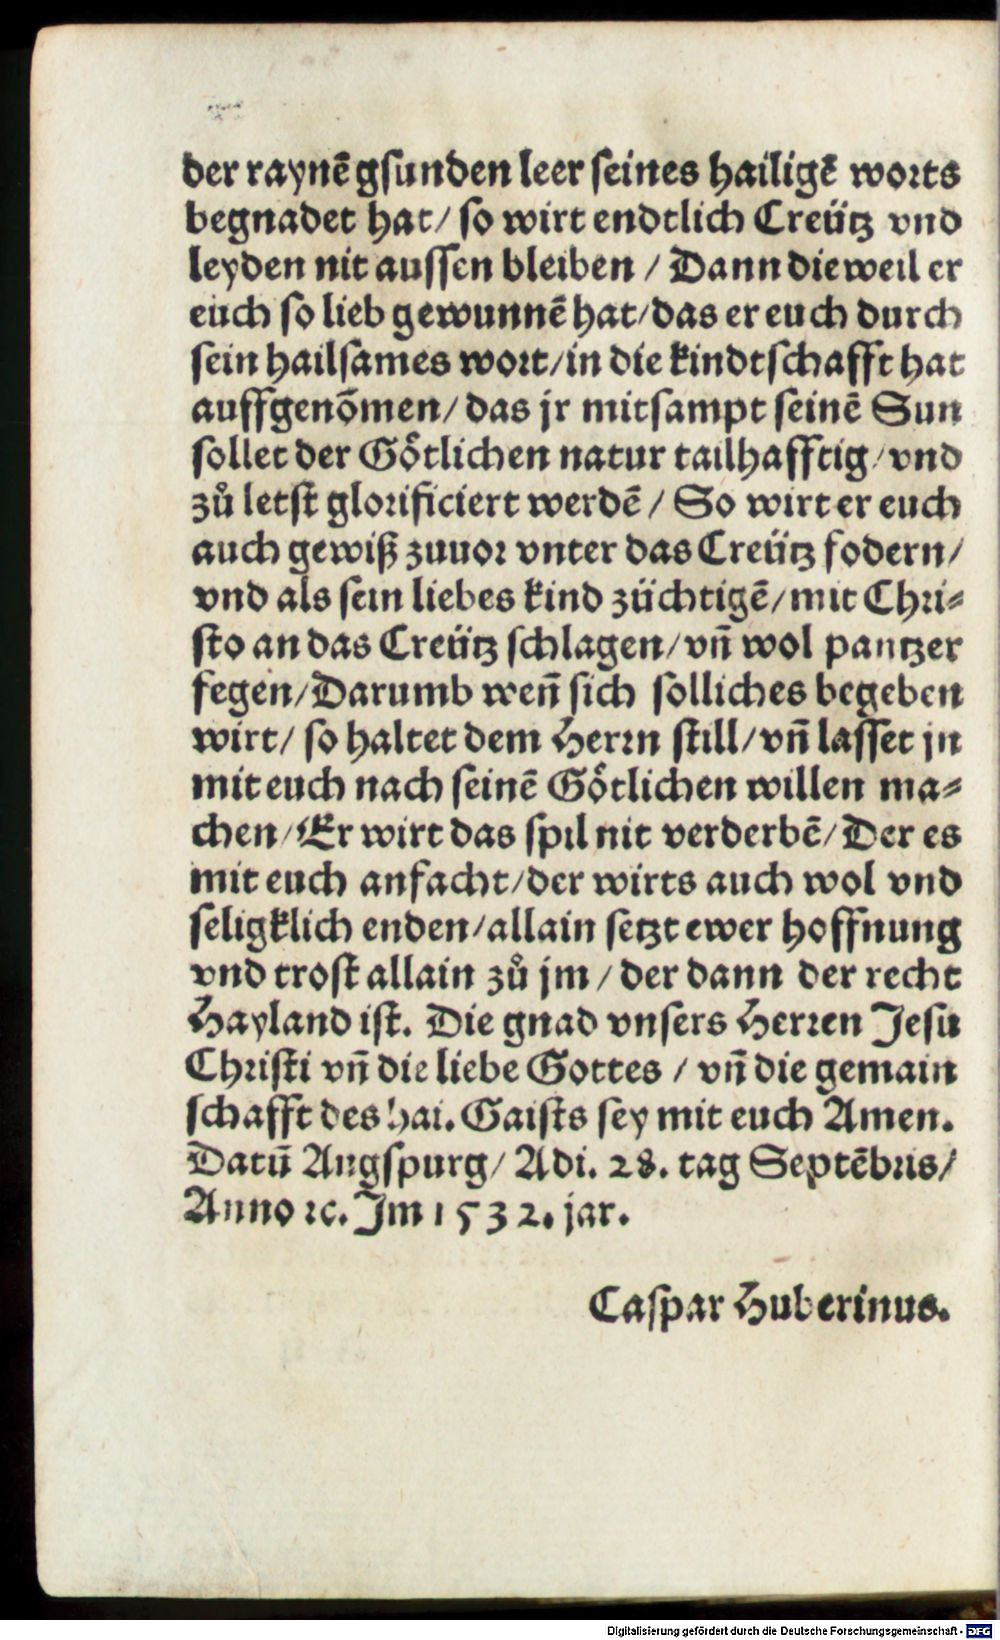 der raynẽ gsunden leer seines hailigẽ worts
begnadet hat/ so wirt endtlich Creütz vnd
leyden nit aussen bleiben / Dann dieweil er
euch so lieb gewunnẽ hat/das er euch durch
sein hailsames wort/in die kindtschafft hat
auffgenõmen/ das jr mitsampt seinẽ Sun
sollet der Götlichen natur tailhafftig/vnd
zů letst glorificiert werdẽ / So wirt er euch
auch gewiß zuuor vnter das Creütz fodern/
vnd als sein liebes kind züchtigẽ/mit Chri⸗
sto an das Creütz schlagen/vñ wol pantzer
fegen/Darumb weñ sich solliches begeben
wirt/ so haltet dem Herrn still/vñ lasset jn
mit euch nach seinẽ Götlichen willen ma⸗
chen/Er wirt das spil nit verderbẽ/Der es
mit euch anfacht/der wirts auch wol vnd
seligklich enden/allain setzt ewer hoffnung
vnd trost allain zů jm / der dann der recht
Hayland ist. Die gnad vnsers Herren Jesu
Christi vñ die liebe Gottes / vñ die gemain
schafft des hai. Gaists sey mit euch Amen.
Datũ Augspurg/ Adi. 28. tag Septẽbris/
Anno ꝛc. Im 1532. jar.
Caspar Huberinus.
Digitalisierung gefördert durch die Deutsche Forschungsgemeinschaft - DFG